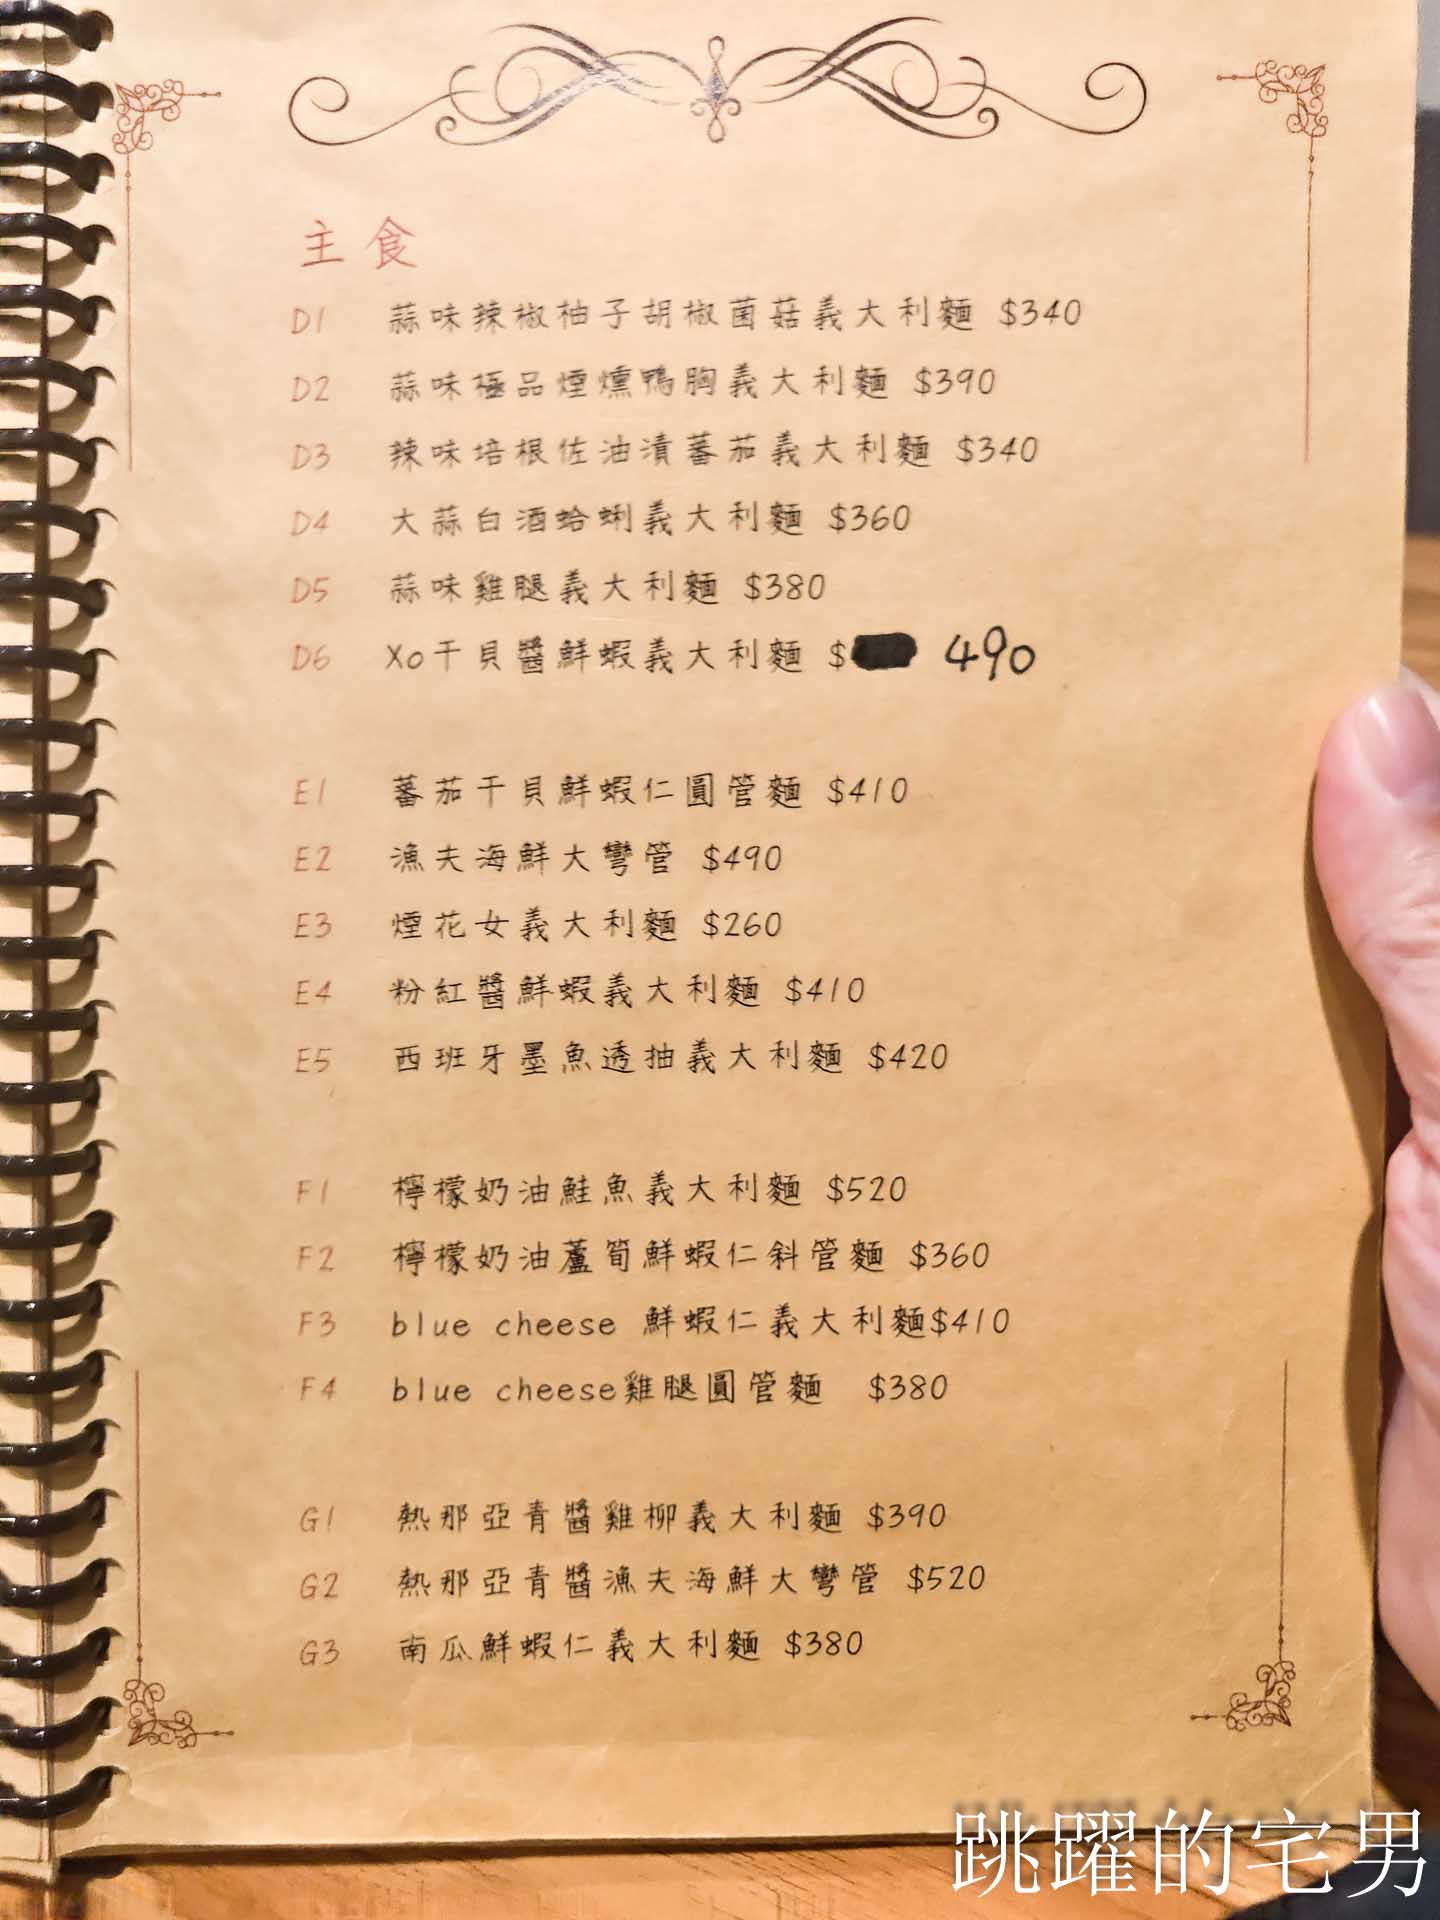 主食
D1 蒜味辣椒柚子胡椒菌菇義大利麵 $340
D2 蒜味極品煙燻鴨胸義大利麵 $390
D3 辣味培根佐油漬蕃茄義大利麵 $340
D4 大蒜白酒蛤蜊義大利麵 $360
D5 蒜味雞腿義大利麵 $380
D6 Xo干貝醬鮮蝦義大利麵 $ 490
E1 蕃茄干貝鮮蝦仁圓管麵 $410
E2 漁夫海鮮大彎管 $490
E3 煙花女義大利麵 $260
E4 粉紅醬鮮蝦義大利麵 $410
E5 西班牙墨魚透抽義大利麵 $420
F1 檸檬奶油鮭魚義大利麵 $520
F2 檸檬奶油蘆筍鮮蝦仁斜管麵 $360
F3 blue cheese 鮮蝦仁義大利麵$410
F4 blue cheese雞腿圓管麵 $380
G1 熱那亞青醬雞柳義大利麵 $390
G2 熱那亞青醬漁夫海鮮大彎管 $520
G3 南瓜鮮蝦仁義大利麵 $380
跳躍的宅男